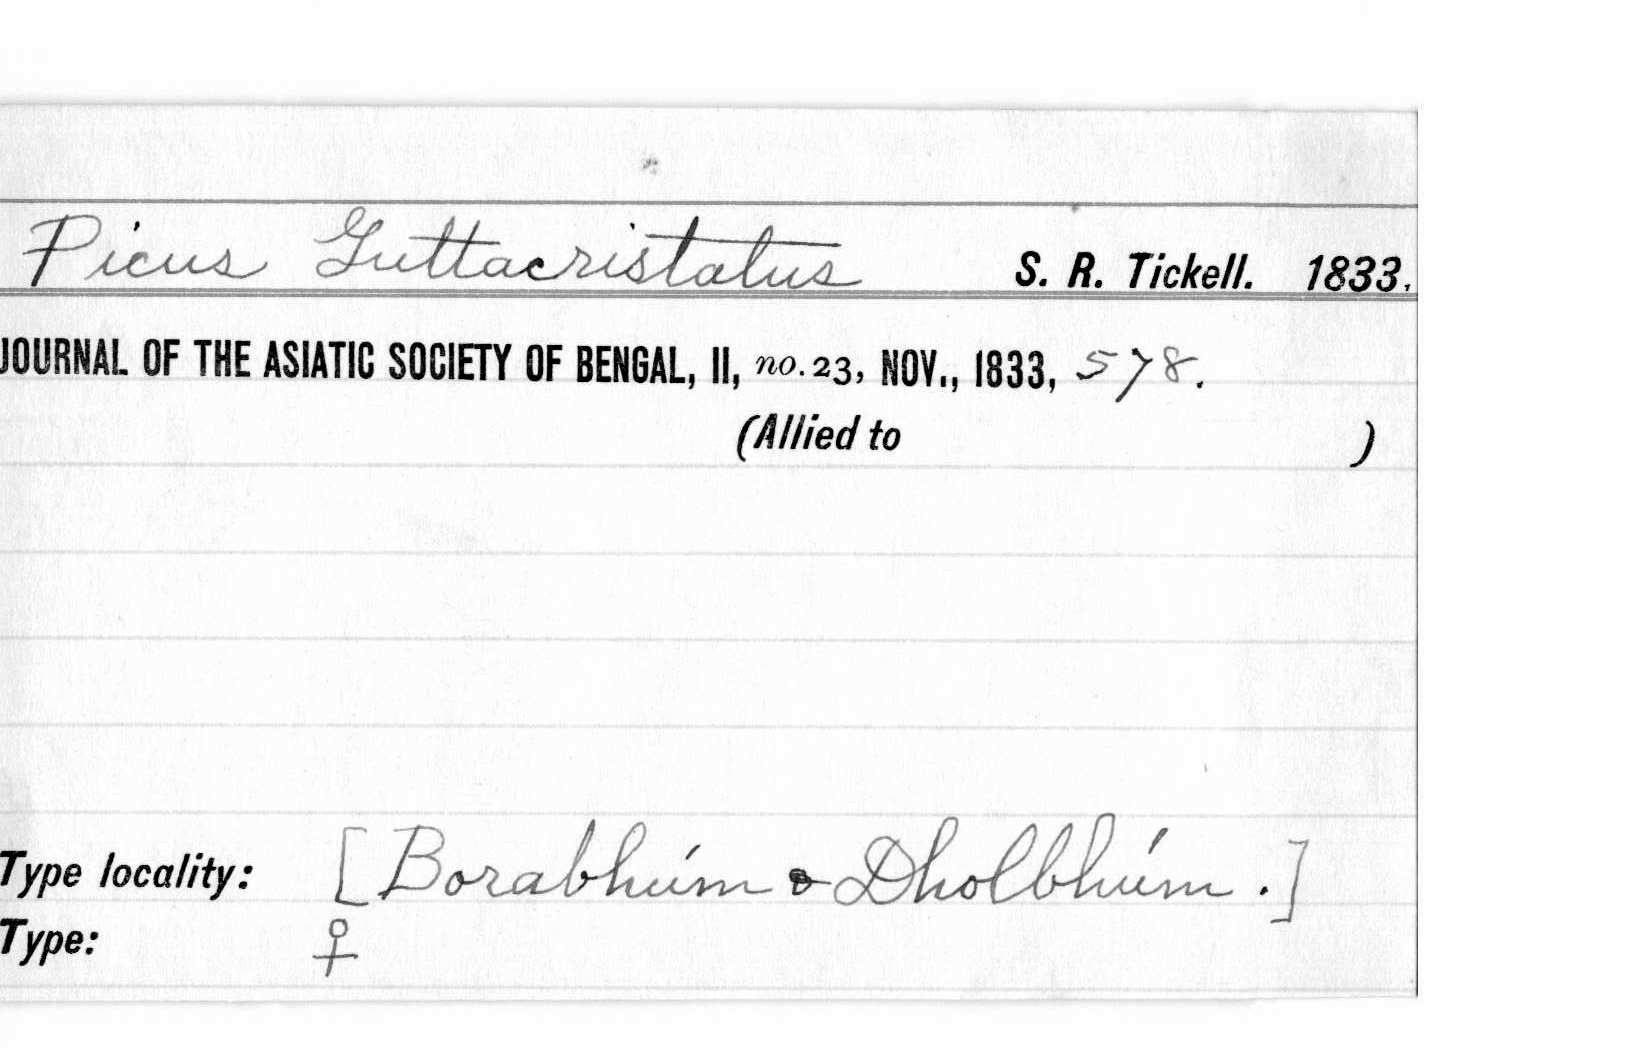 Picus Guttacristatus S. R. Tickell. 1833.
JOURNAL OF THE ASIATIC SOCIETY OF BENGAL, II, no. 23, NOV., 1833, 578.
(Allied to )
Type locality: [Borabhúm & Dholbhúm.]
Type: ♀